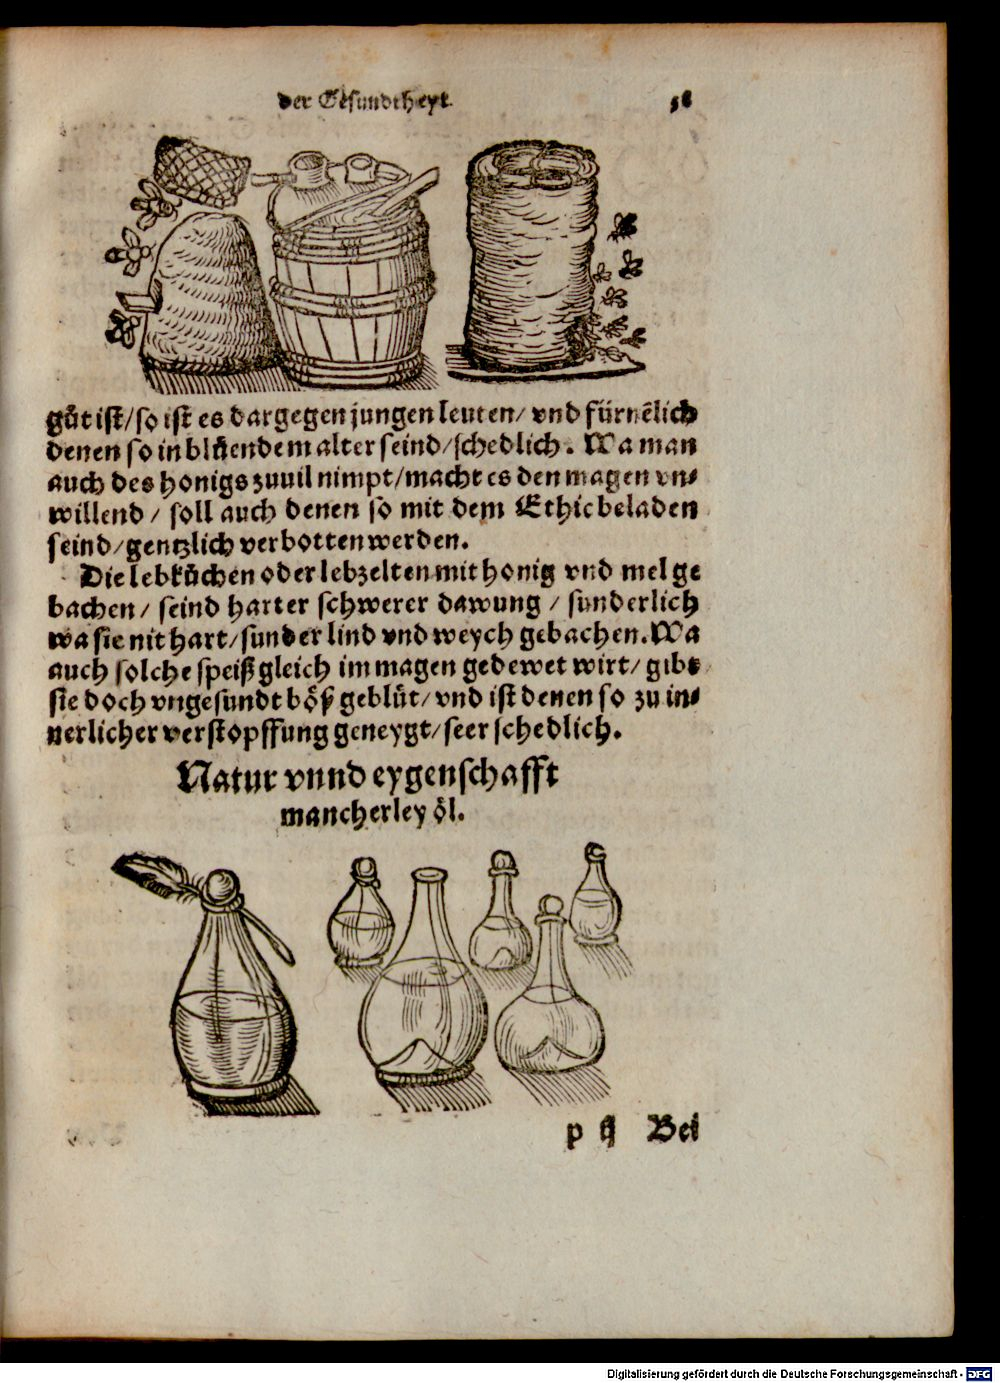 der Gesundtheyt.
gůt ist/so ist es dargegen jungen leuten/ vnd fürnẽlich
denen so in blůendem alter seind/schedlich. Wa man
auch des honigs zuuil nimpt/macht es den magen vn⸗
willend / soll auch denen so mit dem Ethic beladen
seind/gentzlich verbotten werden.
Die lebkůchen oder lebzelten mit honig vnd mel ge
bachen/ seind harter schwerer dawung / sunderlich
wa sie nit hart/sunder lind vnd weych gebachen. Wa
auch solche speiß gleich im magen gedewet wirt/ gibt
sie doch vngesundt bôß geblůt/ vnd ist denen so zu in⸗
nerlicher verstopffung geneygt/seer schedlich.
Natur vnnd eygenschafft
mancherley ôl.
p ij Bei
Digitalisierung gefördert durch die Deutsche Forschungsgemeinschaft - DFG